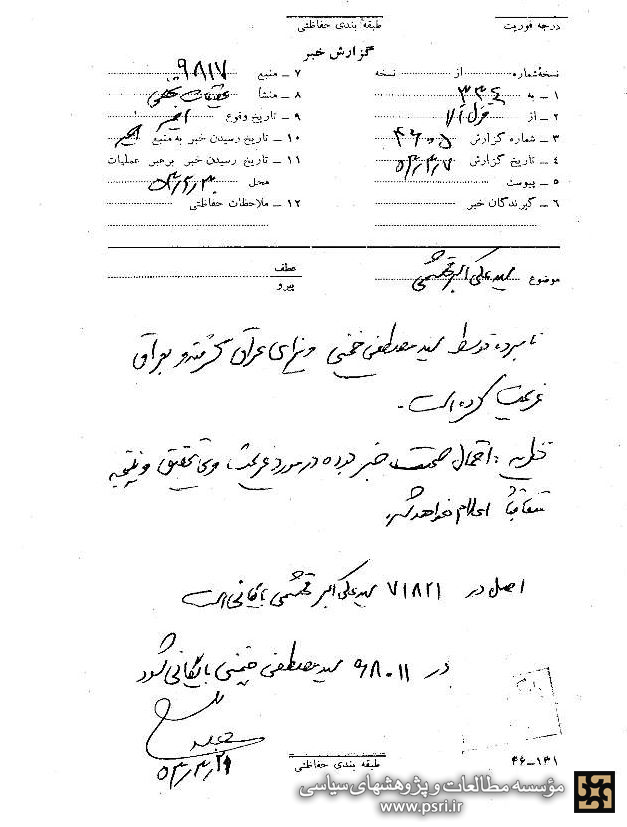 درجه فوریت
طبقه بندی حفاظتی
گزارش خبر
نسخهٔ شماره از نسخه
۱ – به ۳۳٤
۲ – از
۳ – شماره گزارش
٤ – تاریخ گزارش ۵۳٫۴٫۷
۵ – پیوست
۶ – گیرندگان خبر
۷ – منبع ۹۸۱۷
۸ – منشأ
۹ – تاریخ وقوع اخیر
۱۰ – تاریخ رسیدن خبر به منبع اخیر
۱۱ – تاریخ رسیدن خبر برهبر عملیات
محل ۵۳٫۴٫۳
۱۲ – ملاحظات حفاظتی
موضوع سید علی اکبر محتشمی
عطف
پیرو
نامبرده توسط سید مصطفی خمینی ویزای عراق گرفته و بعراق
عزیمت کرده است.
نظریه : احتمال صحت خبر بوده در مورد عزیمت وی تحقیق و نتیجه
متعاقباً اعلام خواهد شد.
اصل در ۷۱۸۲۱ سید علی اکبر محتشمی بایگانی است
در ۹۸۰۱۱ سید مصطفی خمینی بایگانی شود
طبقه بندی حفاظتی
۴۶-۱۳۱
مؤسسه مطالعات و پژوهشهای سیاسی
www.psri.ir